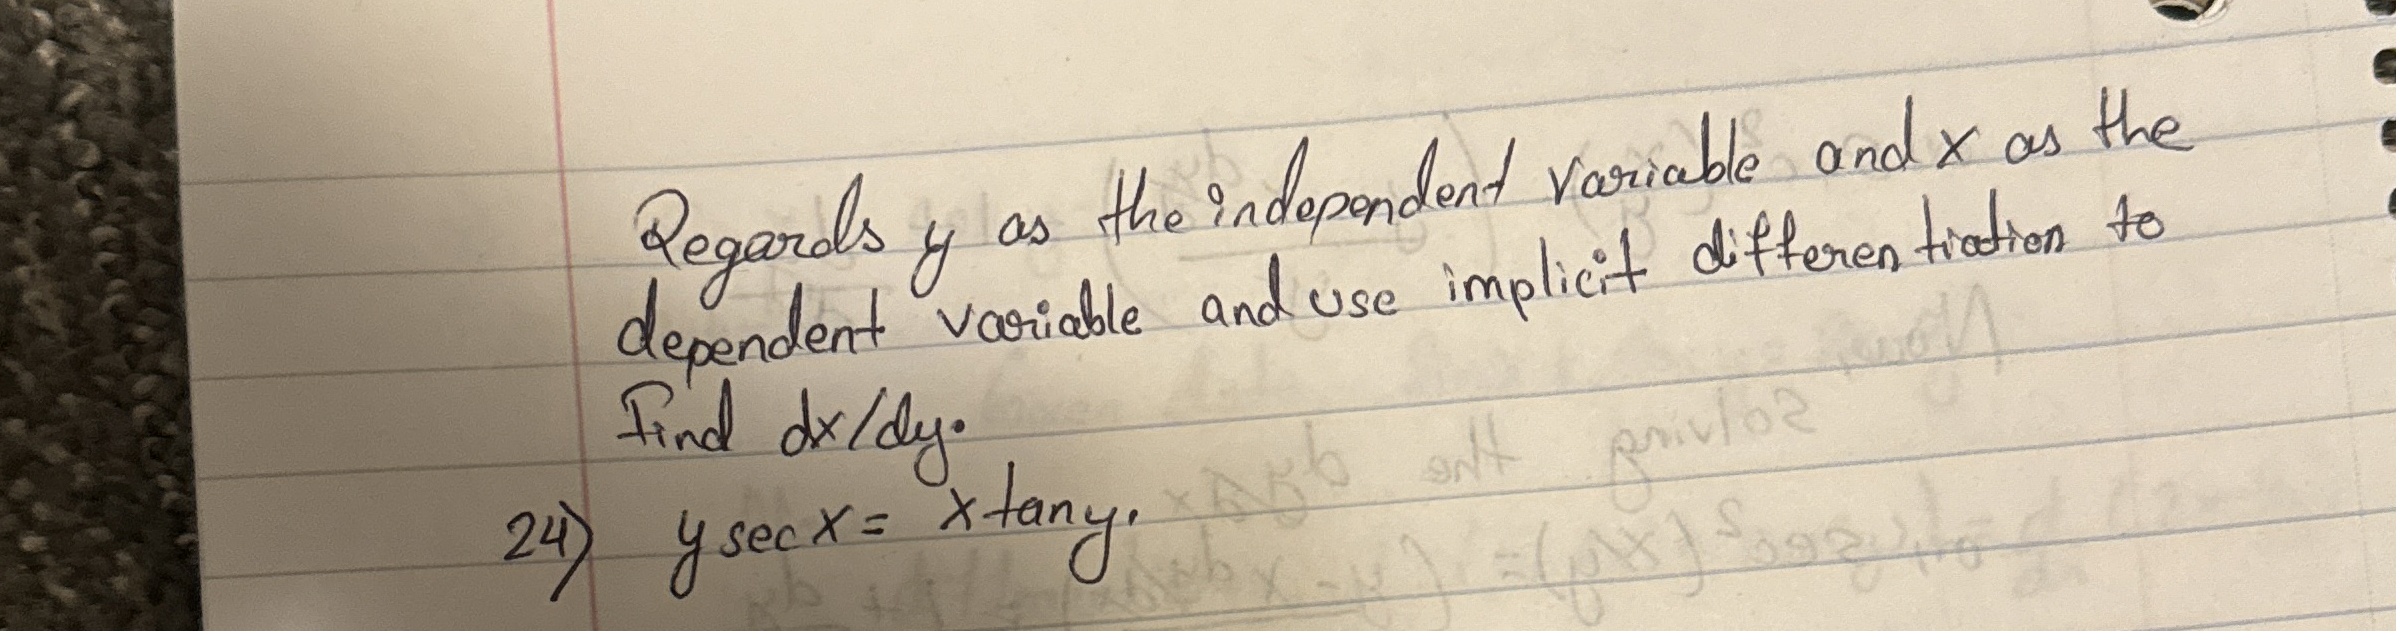 Regards y as the independent variable and x as the
dependent variable and use implicit differentiation to
Find dx/dy.
24) y sec x = x tan y.